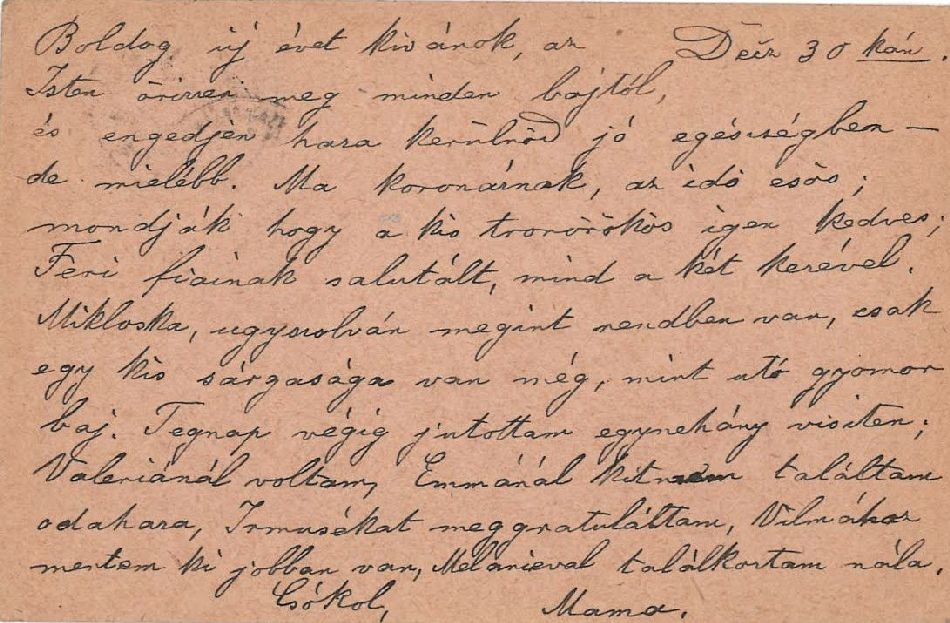 Boldog új évet kivánok, az Décz 30 kán.
Isten őrizzen meg minden bajtól,
és engedjen haza kerülnöd jó egésségben —
de mielébb. Ma koronáznak, az idő esős;
mondják hogy a kis tronörökös igen kedves;
Feri fiainak salutált, mind a két kezével.
Mikloska, ugyszolván megint rendben van, csak
egy kis sárgasága van még, mint utó gyomor
baj. Tegnap végig jutottam egynehány visiten;
Valeriánál voltam, Emmánál kit nem találtam
odahaza, Irmusékat meggratuláltam, Vilmához
mentem ki jobban van, Melanieval találkoztam nála.
Csókol, Mama.